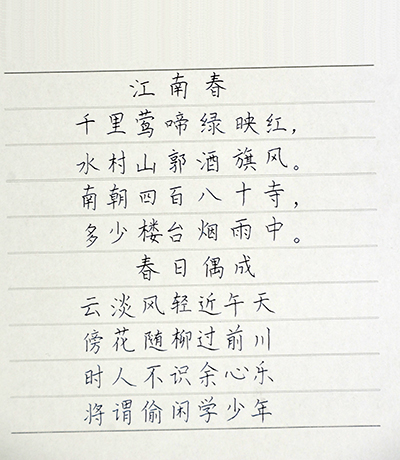 江南春
千里莺啼绿映红，
水村山郭酒旗风。
南朝四百八十寺，
多少楼台烟雨中。
春日偶成
云淡风轻近午天
傍花随柳过前川
时人不识余心乐
将谓偷闲学少年